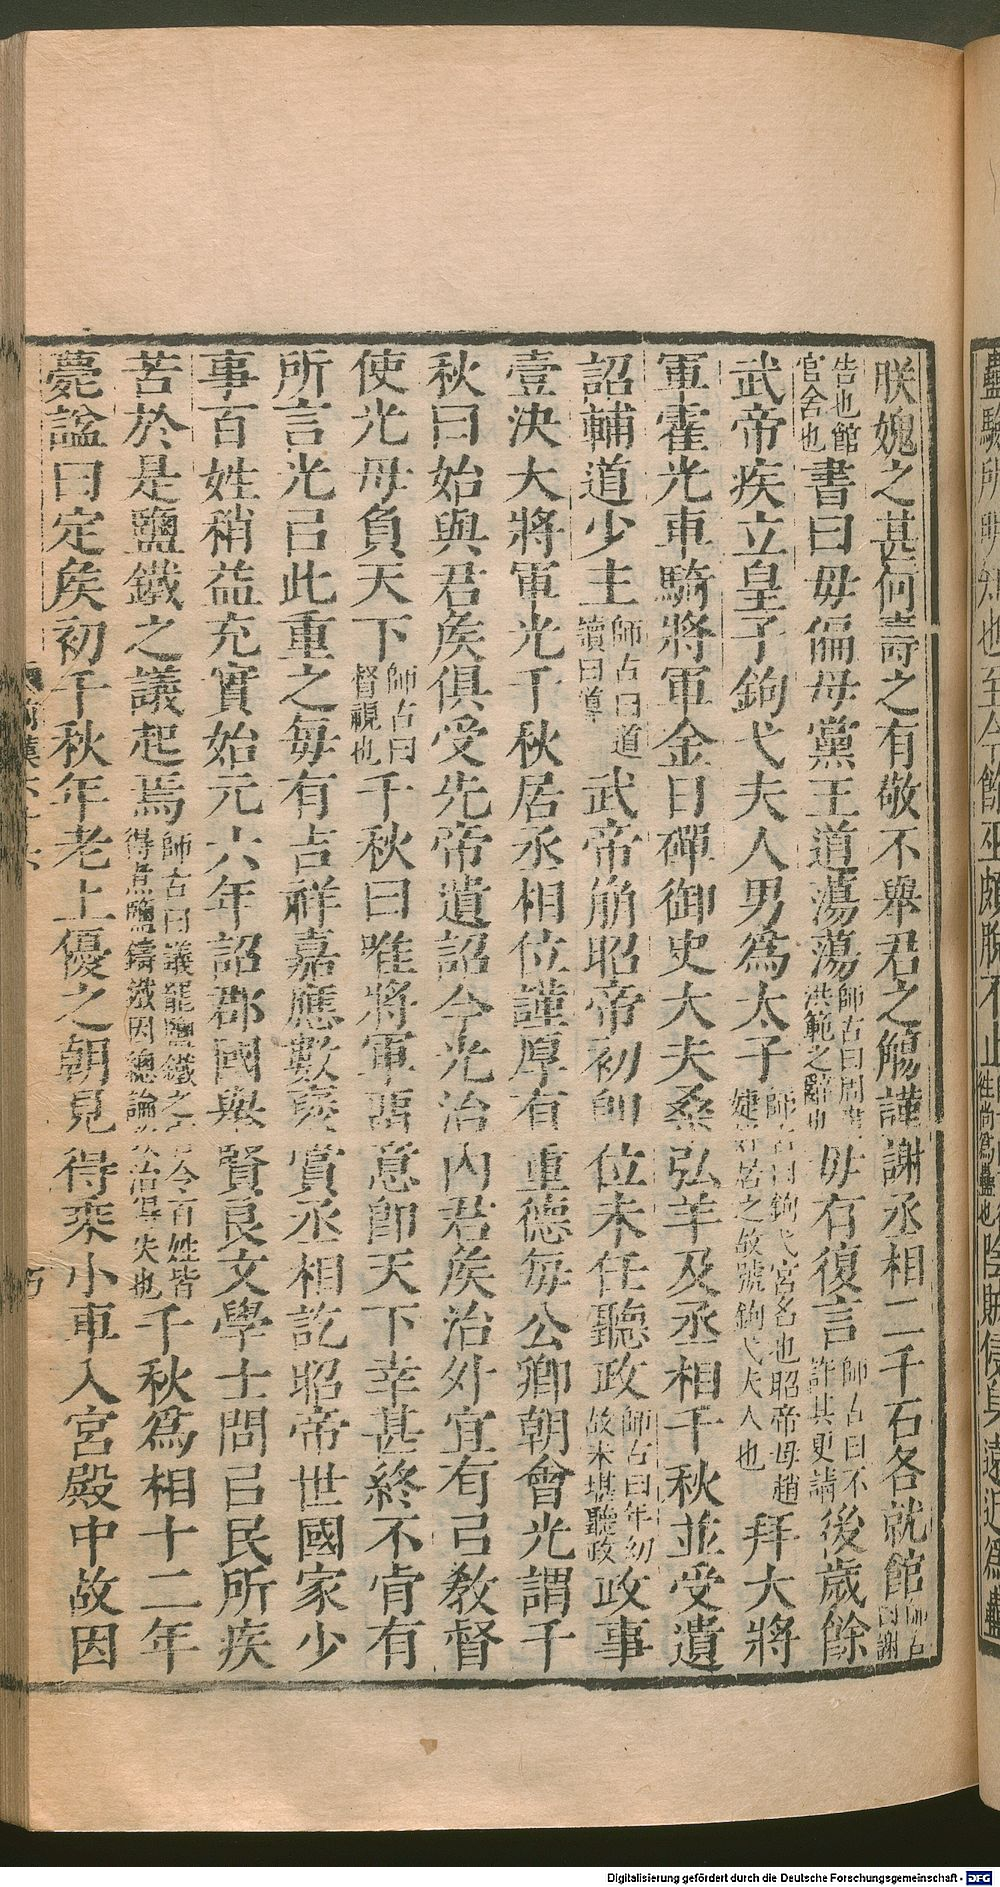 朕媿之甚何壽之有敬不舉君之觴謹謝丞相二千石各就館師古曰謝
告也館官舍也書曰毋偏毋黨王道蕩蕩師古曰周書洪範之辭也毋有復言師古曰不許其更請後歲餘
武帝疾立皇子鉤弋夫人男爲太子師古曰鉤弋宮名也昭帝母趙婕妤居之故號鉤弋夫人也拜大將
軍霍光車騎將軍金日磾御史大夫桑弘羊及丞相千秋並受遺
詔輔道少主師古曰道讀曰導武帝崩昭帝初卽位未任聽政師古曰年幼故未堪聽政政事
壹決大將軍光千秋居丞相位謹厚有重德每公卿朝會光謂千
秋曰始與君矦俱受先帝遺詔今光治內君矦治外宜有㠯教督
使光毋負天下師古曰督視也千秋曰唯將軍畱意卽天下幸甚終不肯有
所言光㠯此重之每有吉祥嘉應數襃賞丞相訖昭帝世國家少
事百姓稍益充實始元六年詔郡國舉賢良文學士問㠯民所疾
苦於是鹽鐵之議起焉師古曰議罷鹽鐵之官令百姓皆得煮鹽鑄鐵因總論政治得失也千秋爲相十二年
薨諡曰定矦初千秋年老上優之朝見得乘小車入宮殿中故因
蠱驗所明知也至今餘巫頗脫不止
陰賊侵身遠近爲蠱
Digitalisierung gefördert durch die Deutsche Forschungsgemeinschaft - DFG